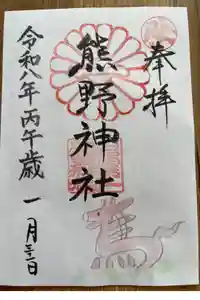 奉拝
熊野神社
令和八年丙午歳 一月三日